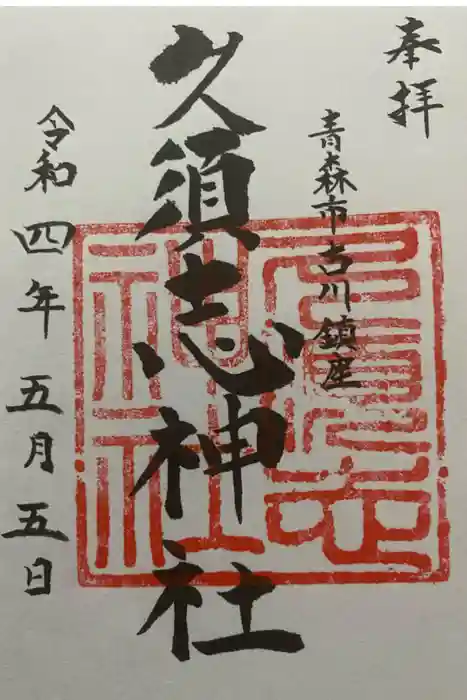 奉拝
青森市古川鎮座
久須志神社
令和四年五月五日
久須志
神社